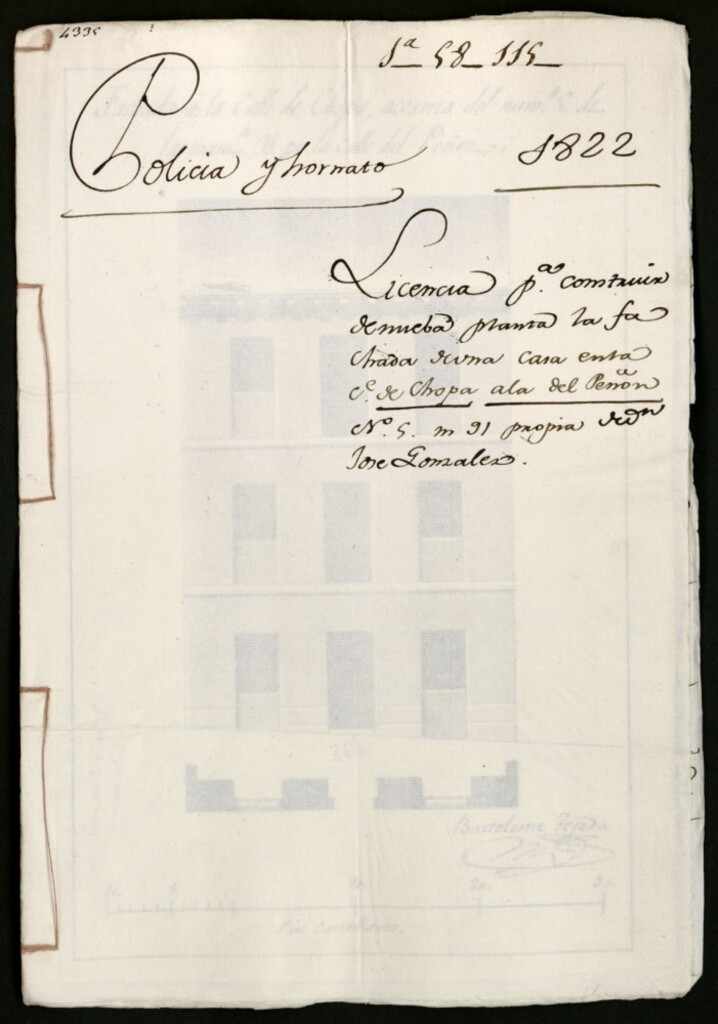 4335
1ª 58 115
Policia y hornato 1822
Licencia pª. construir
de nueba planta la fa
chada de una casa enla
c.e de Chopa ala del Peñon
Nº. 5. m 91 propia de dn
Jose Gonzalez.
Fachada a la Calle de Chopa, acesoria del num.º 5 de
la manz.ª 91 por la calle del Peñon
Bartolome Tejeda
Pies castellanos.